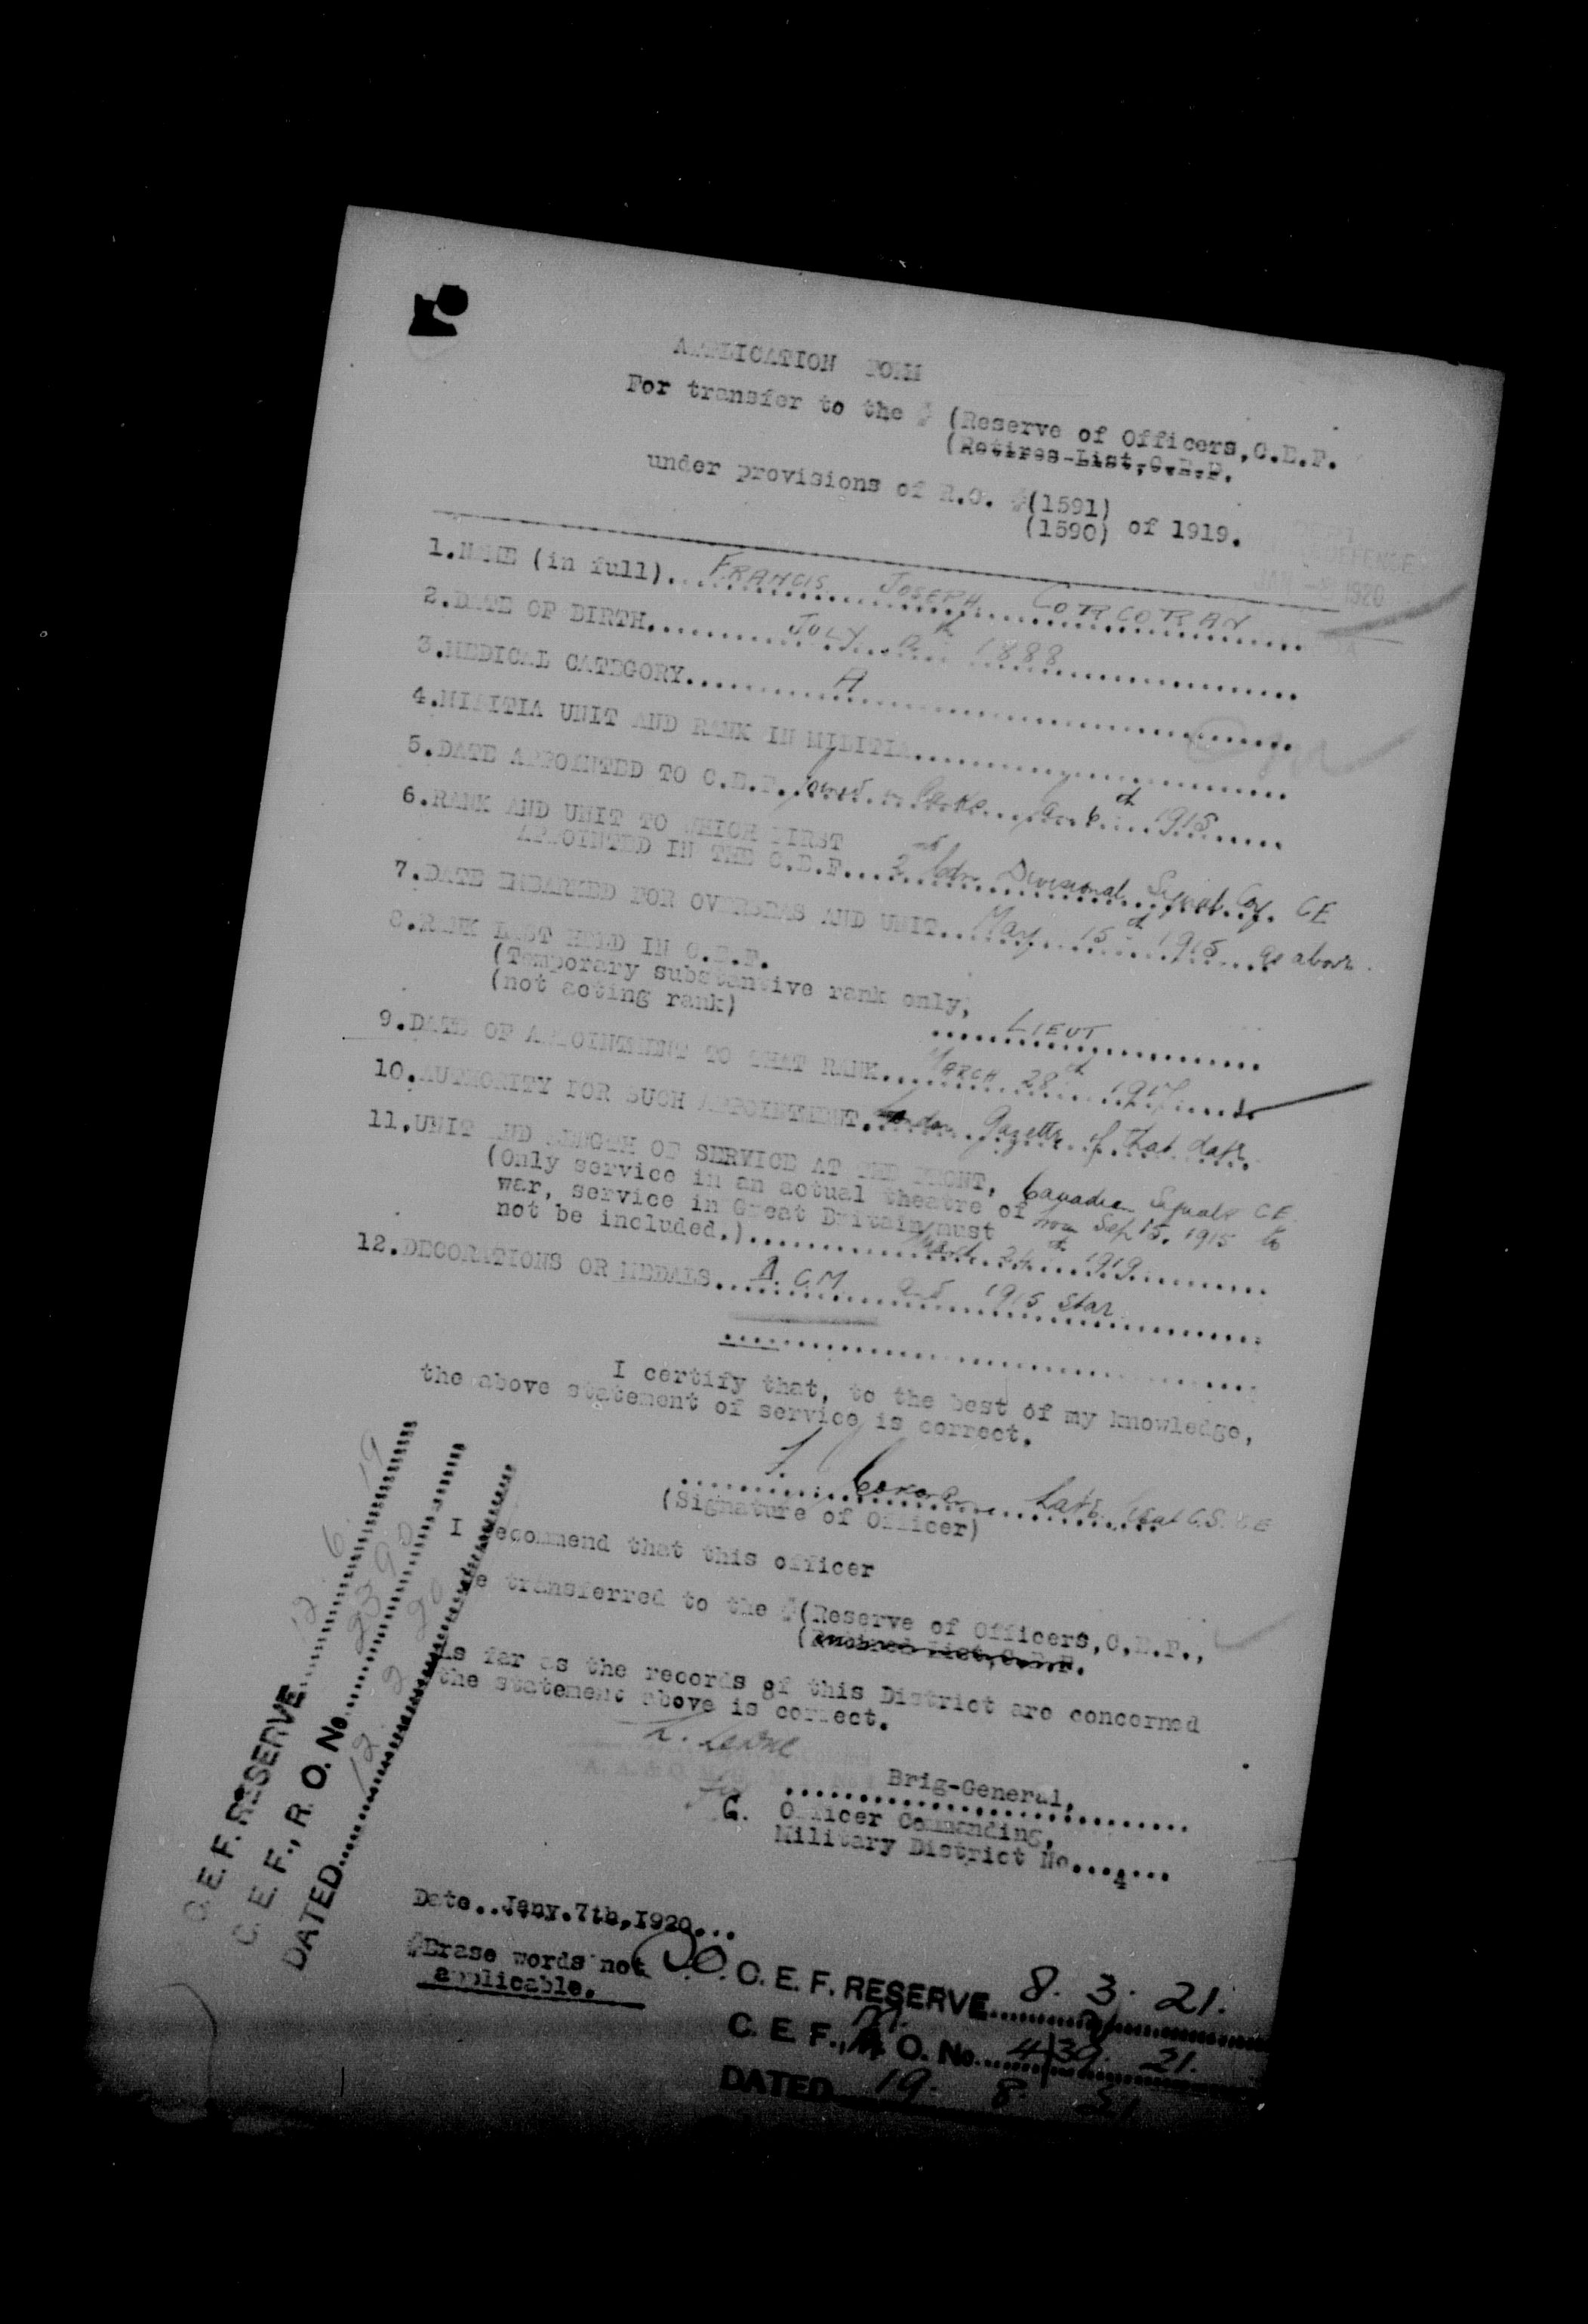 APPLICATION FORM
For transfer to the # (Reserve of Officers, C.E.F.
(Retires-List, C.E.F.
under provisions of R.O. #(1591)
(1590) of 1919.
1.NAME (in full)... FRANCIS JOSEPH CORCORAN
DEFENCE
JAN 1920
2.DATE OF BIRTH......... JULY 1888
3.MEDICAL CATEGORY......... A
4.MILITIA UNIT AND RANK IN MILITIA.........
5.DATE APPOINTED TO C.E.F. joined 6th 1915
6.RANK AND UNIT TO WHICH FIRST
APPOINTED IN THE C.E.F.... 2nd Cdn Divisional Signal Coy. CE
7.DATE EMBARKED FOR OVERSEAS AND UNIT.. May 15th 1915 as above.
8.RANK LAST HELD IN C.E.F.
(Temporary substantive rank only,
(not acting rank) LIEUT
9.DATE OF APPOINTMENT TO THAT RANK... MARCH 28th 1917
10.AUTHORITY FOR SUCH APPOINTMENT. London Gazette of that date.
11.UNIT AND LENGTH OF SERVICE AT THE FRONT, Canadian Signals CE.
(Only service in an actual theatre of from Sep 15. 1915 to
war, service in Great Britain must
not be included.)......... March 24th 1919
12.DECORATIONS OR MEDALS... D.C.M. and 1915 Star.
I certify that, to the best of my knowledge,
the above statement of service is correct.
F. Corcoran Late Lieut C.S. C.E
(Signature of Officer)
I recommend that this officer
be transferred to the #(Reserve of Officers, C.E.F.,
(Retired List, C.E.F.
As far as the records of this District are concerned
the statement above is correct.
for Brig-General,
G. Officer Commanding,
Military District No....4...
Date..Jany.7th,1920...
#Erase words not
applicable.
C. E. F. RESERVE 12. 6. 19
C. E. F., R. O. No. 2390
DATED 12. 2. 20
S.O. C. E. F. RESERVE 8. 3. 21.
C. E. F., R. O. No. 439. 21.
DATED 19. 8. 21